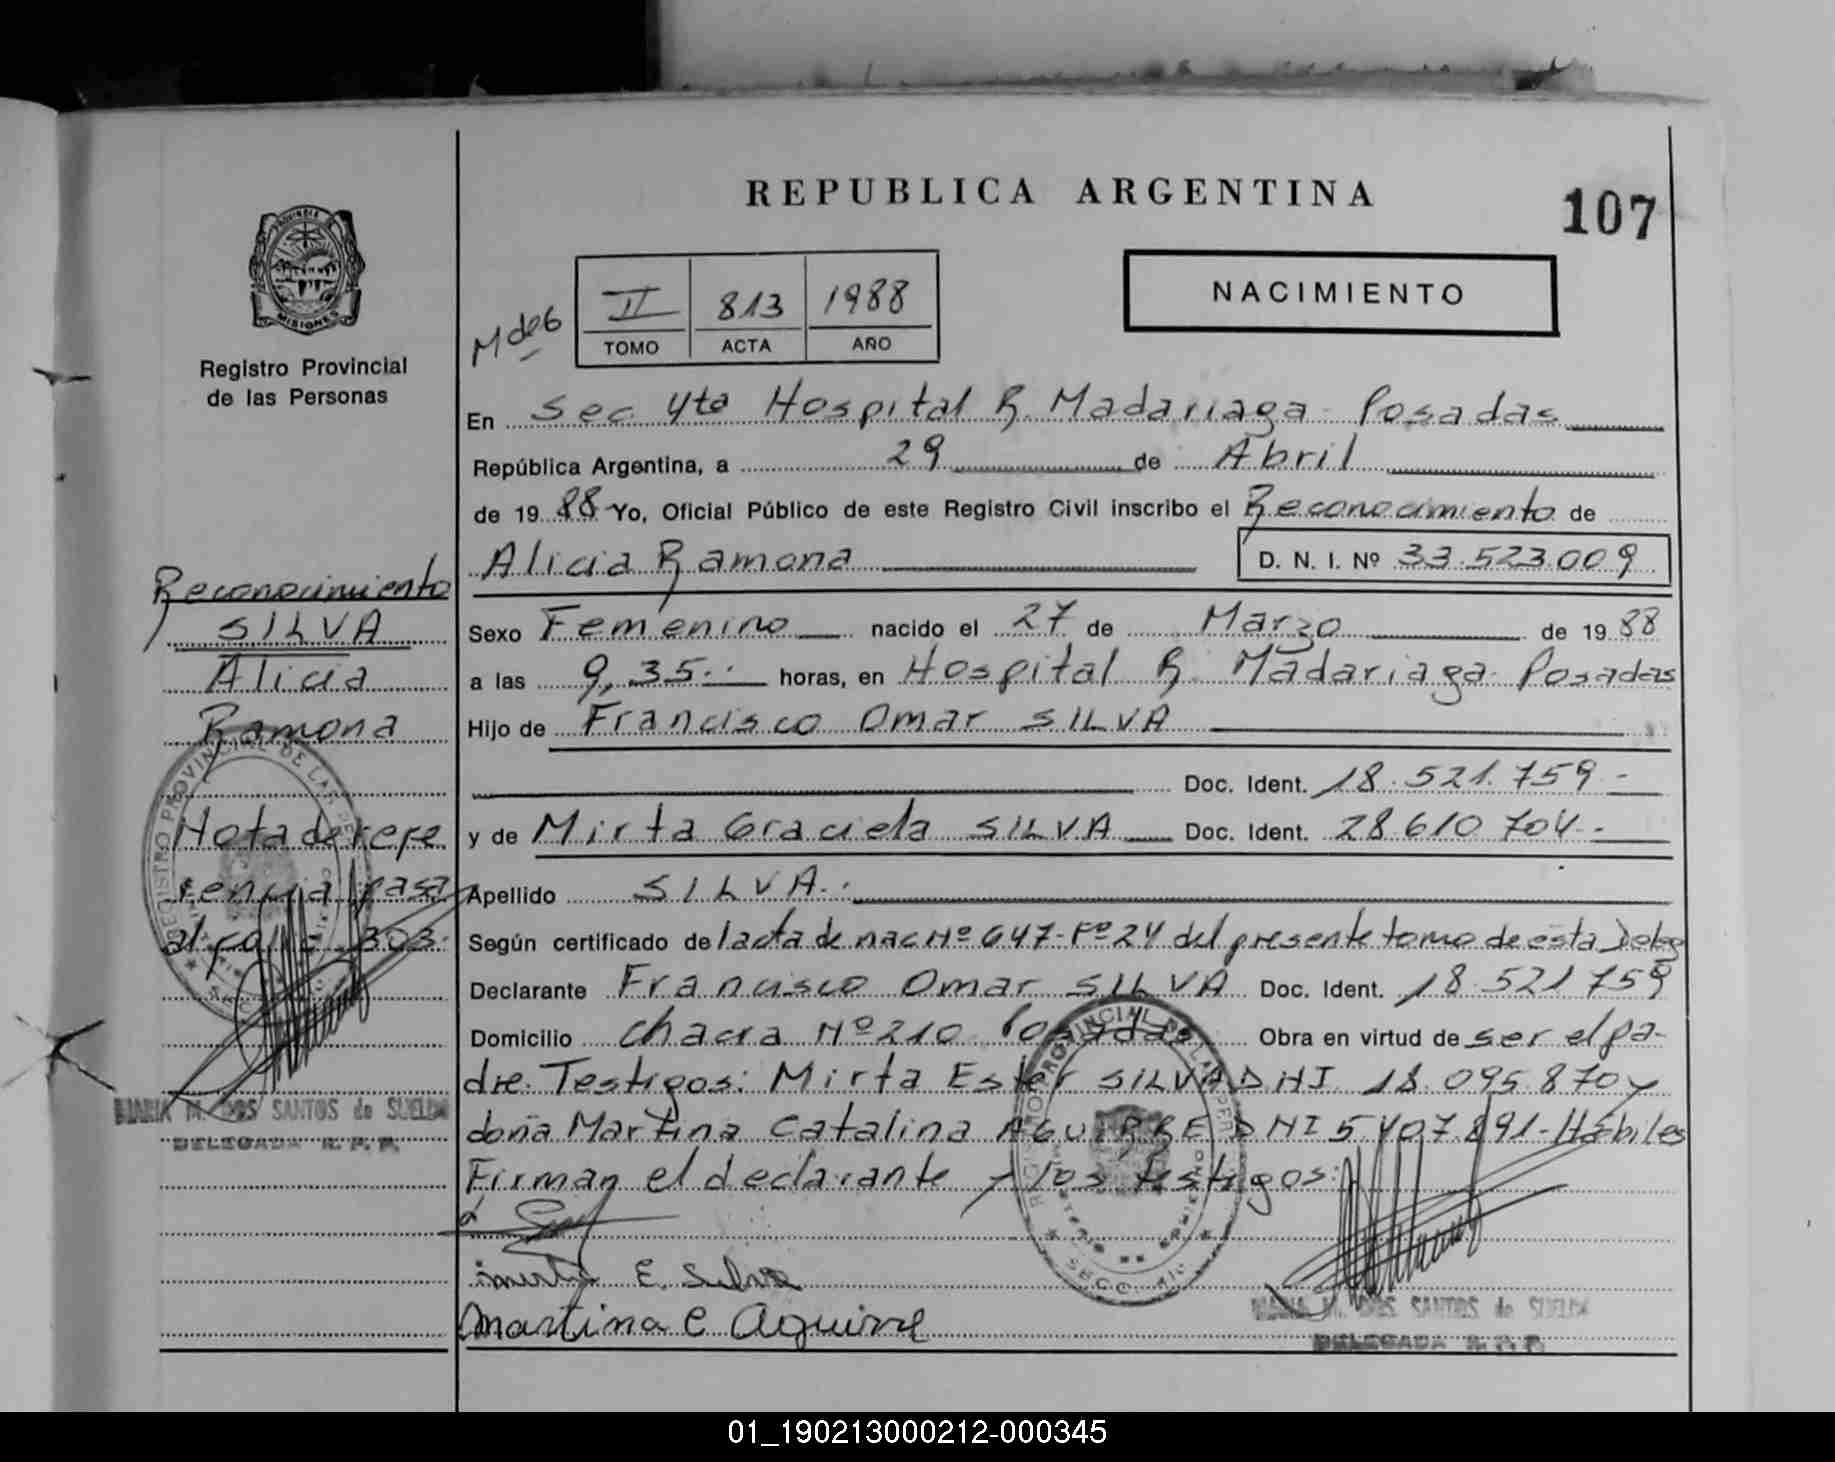 REPUBLICA ARGENTINA
107
PROVINCIA DE
MISIONES
Registro Provincial
de las Personas
NACIMIENTO
II 813 1988
TOMO ACTA AÑO
En Sec 4ta Hospital R. Madariaga Posadas
República Argentina, a 29 de Abril
de 1988 Yo, Oficial Público de este Registro Civil inscribo el Reconocimiento de
Alicia Ramona D. N. I. Nº 33.523.009
Sexo Femenino nacido el 27 de Marzo de 1988
a las 9,35 horas, en Hospital R. Madariaga Posadas
Hijo de Francisco Omar SILVA
Doc. Ident. 18.521.759
y de Mirta Graciela SILVA Doc. Ident. 28.610.704
Apellido SILVA
Según certificado de l acta de nac Nº 647-Fº 24 del presente tomo de esta Deleg
Declarante Francisco Omar SILVA Doc. Ident. 18.521.759
Domicilio chacra Nº 210 Posadas Obra en virtud de ser el pa-
dre. Testigos: Mirta Ester SILVA DNI 18.095.870 y
doña Martina Catalina AGUIRRE DNI 5.407.891-Hábiles
Firman el declarante y los testigos:
mirta E. Silva
Martina C Aguirre
MARIA M. DOS SANTOS de SUELDO
DELEGADA R. P. P.
Reconocimiento
SILVA
Alicia
Ramona
Nota de refe
rencia pasa
al folio 303
MARIA M. DOS SANTOS de SUELDO
DELEGADA R. P. P.
01_190213000212-000345